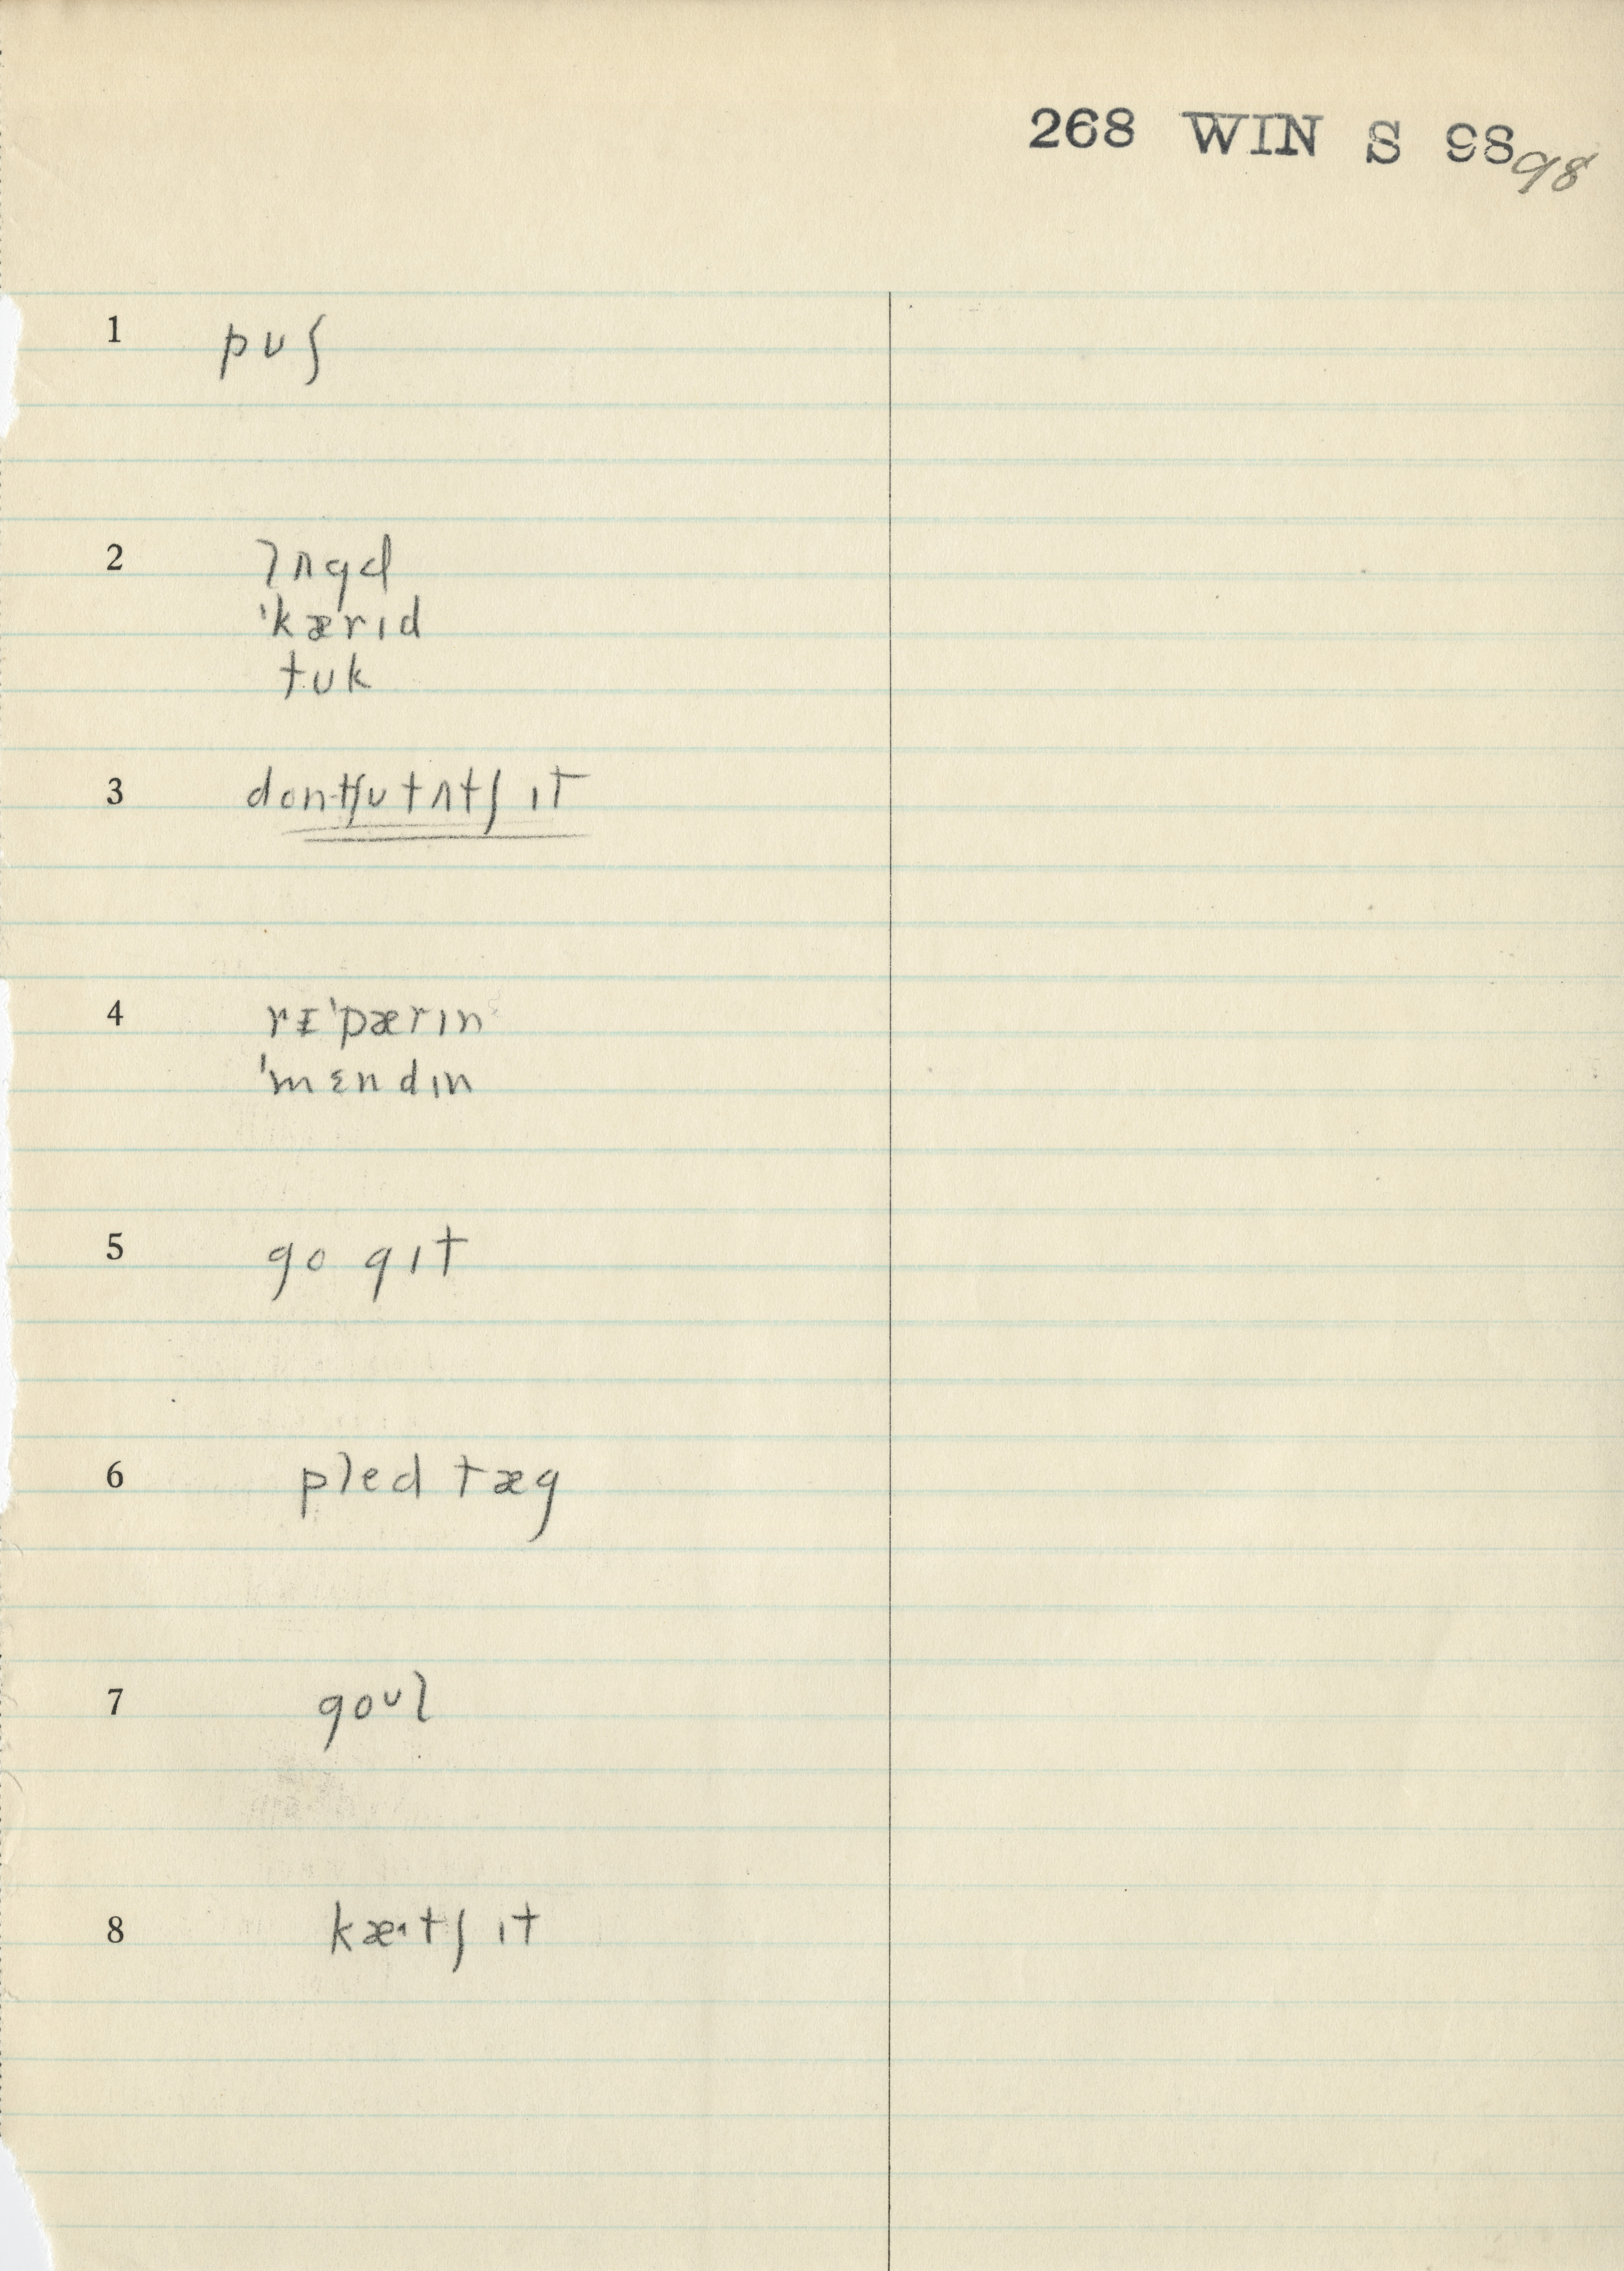 268 WIN S 98 98
1 pʊʃ
2 lʌgd
ˈkærɪd
tʊk
3 dontʃʊtʌtʃ ɪt
4 rɪˈpærɪn
ˈmɛndɪn
5 go gɪt
6 pled tæg
7 goʊl
8 kæɪtʃ ɪt